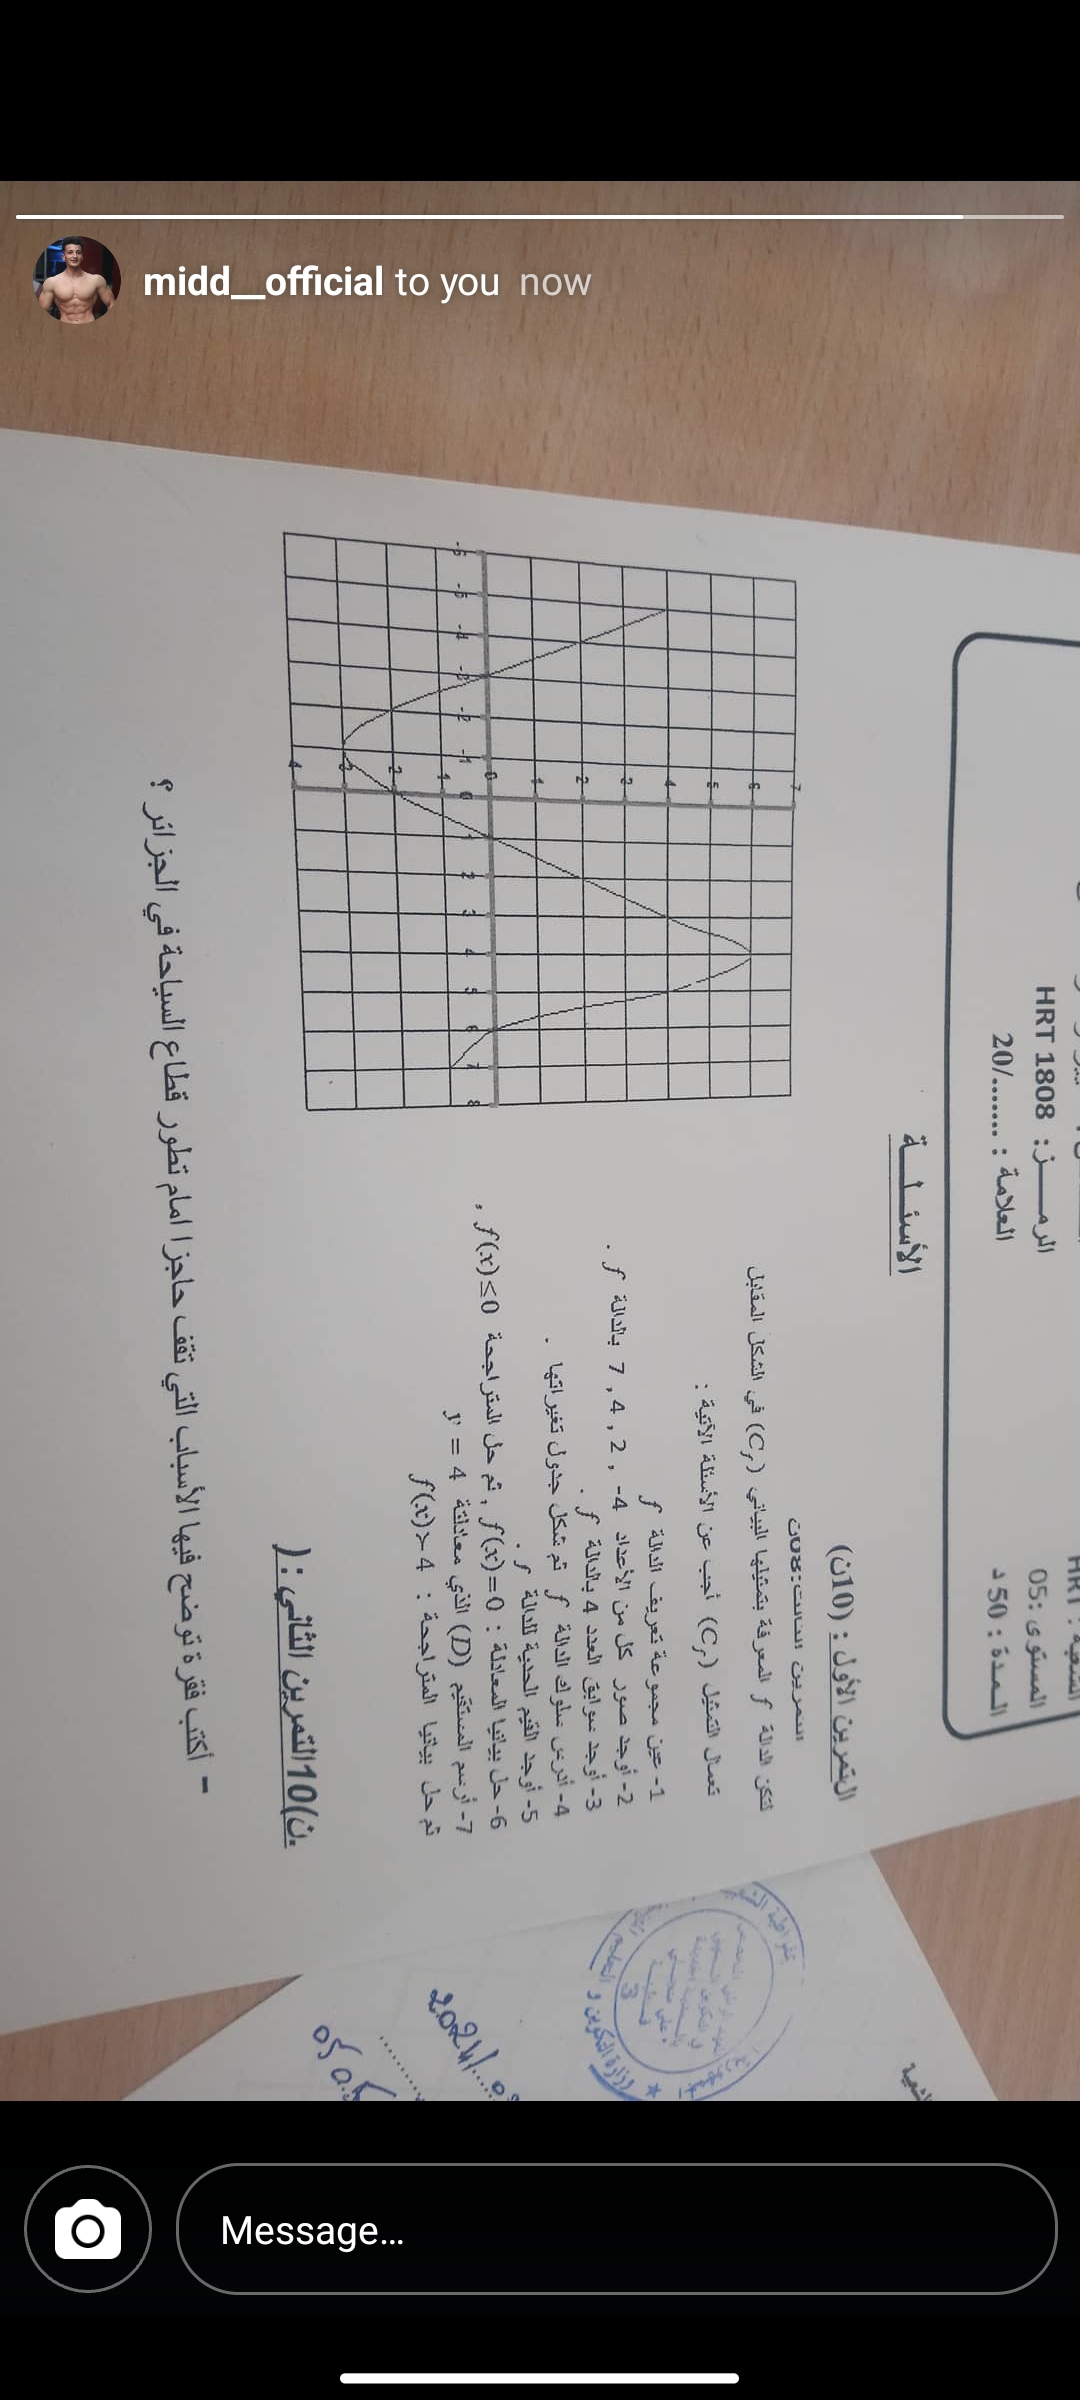 midd__official to you now
HRT 1808 :الرمـــز
20/....... : العلامة
الشعبة : HRT
المستوى :05
المـدة : 50 د
الأسئـلـة
التمرين الأول : (10ن)
لتكن الدالة f المعرفة بتمثيلها البياني (Cf) في الشكل المقابل
نعمال التمثيل (Cf) أجب عن الأسئلة الآتية :
1- عين مجموعة تعريف الدالة f
2- أوجد صور كل من الأعداد 4- , 2 , 4 , 7 بالدالة f .
3- أوجد سوابق العدد 4 بالدالة f .
4- أدرس سلوك الدالة f ثم شكل جدول تغيراتها .
5- أوجد القيم الحدية للدالة f .
6- حل بيانيا المعادلة : f(x)=0 , ثم حل المتراجحة f(x)≤0 ,
7- أرسم المستقيم (D) الذي معادلتة y = 4
ثم حل بيانيا المتراجحة : f(x)>4
-6 -5 -4 -3 -2 -1 0 1 2 3 4 5 6 7 8
7
6
5
4
3
2
1
0
1
2
3
4
التمرين الثاني : (10ن).
– أكتب فقرة توضح فيها الأسباب التي تقف حاجزا امام تطور قطاع السياحة في الجزائر ؟
وزارة التكوين و التعليم
3
2024/
Message...